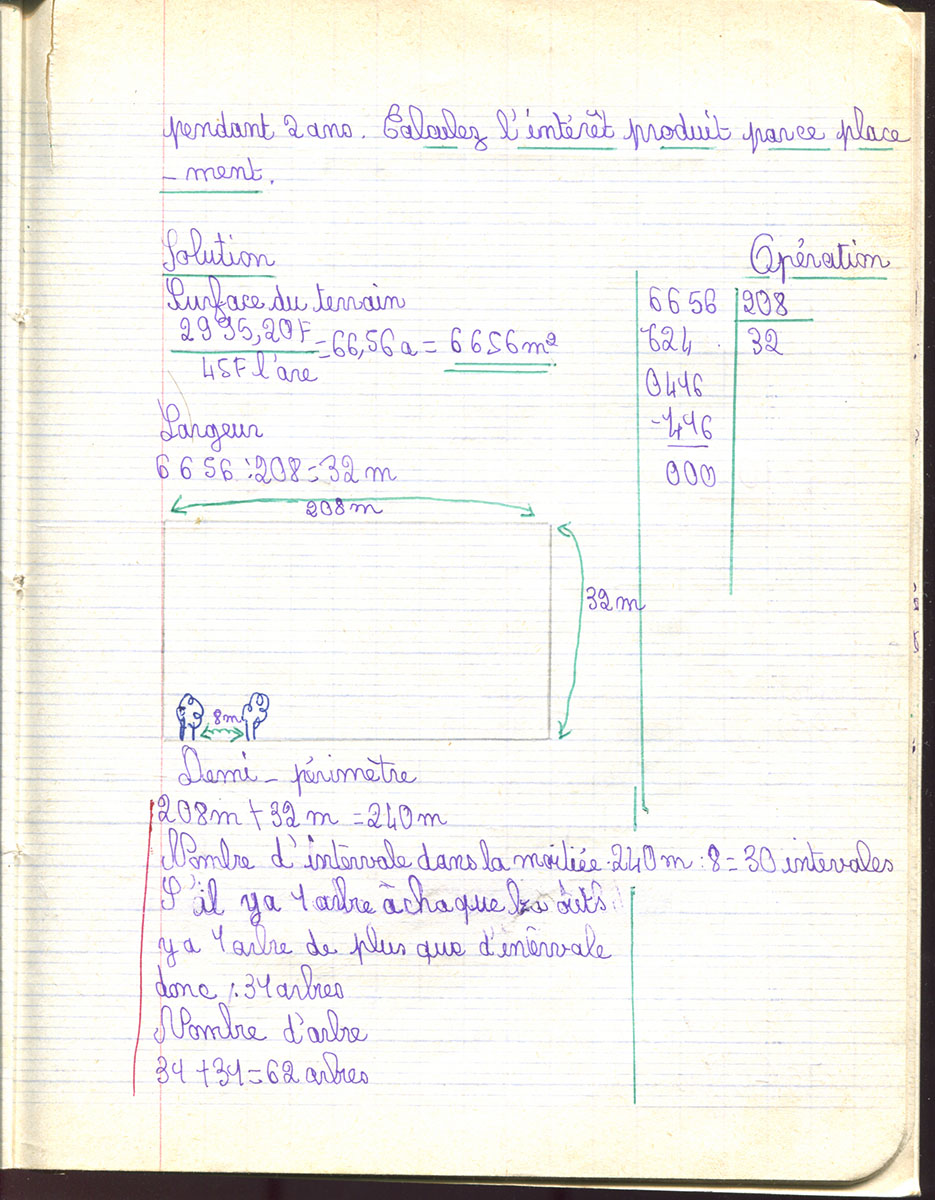 pendant 2 ans. Calculez l'intérêt produit par ce place
- ment.
Solution
Surface du terrain
2995,20F
45F l'are
= 66,56 a = 6656 m²
Largeur
6656 : 208 = 32 m
Opération
6656 208
624 . 32
0416
- 416
000
208 m
32 m
8m
Demi - périmètre
208m + 32 m = 240 m
Nombre d'intervale dans la moitiée 240 m : 8 = 30 intevales
S'il y a 1 arbre à chaque
y a 1 arbre de plus que d'intervale
donc : 31 arbres
Nombre d'arbre
31 + 31 = 62 arbres